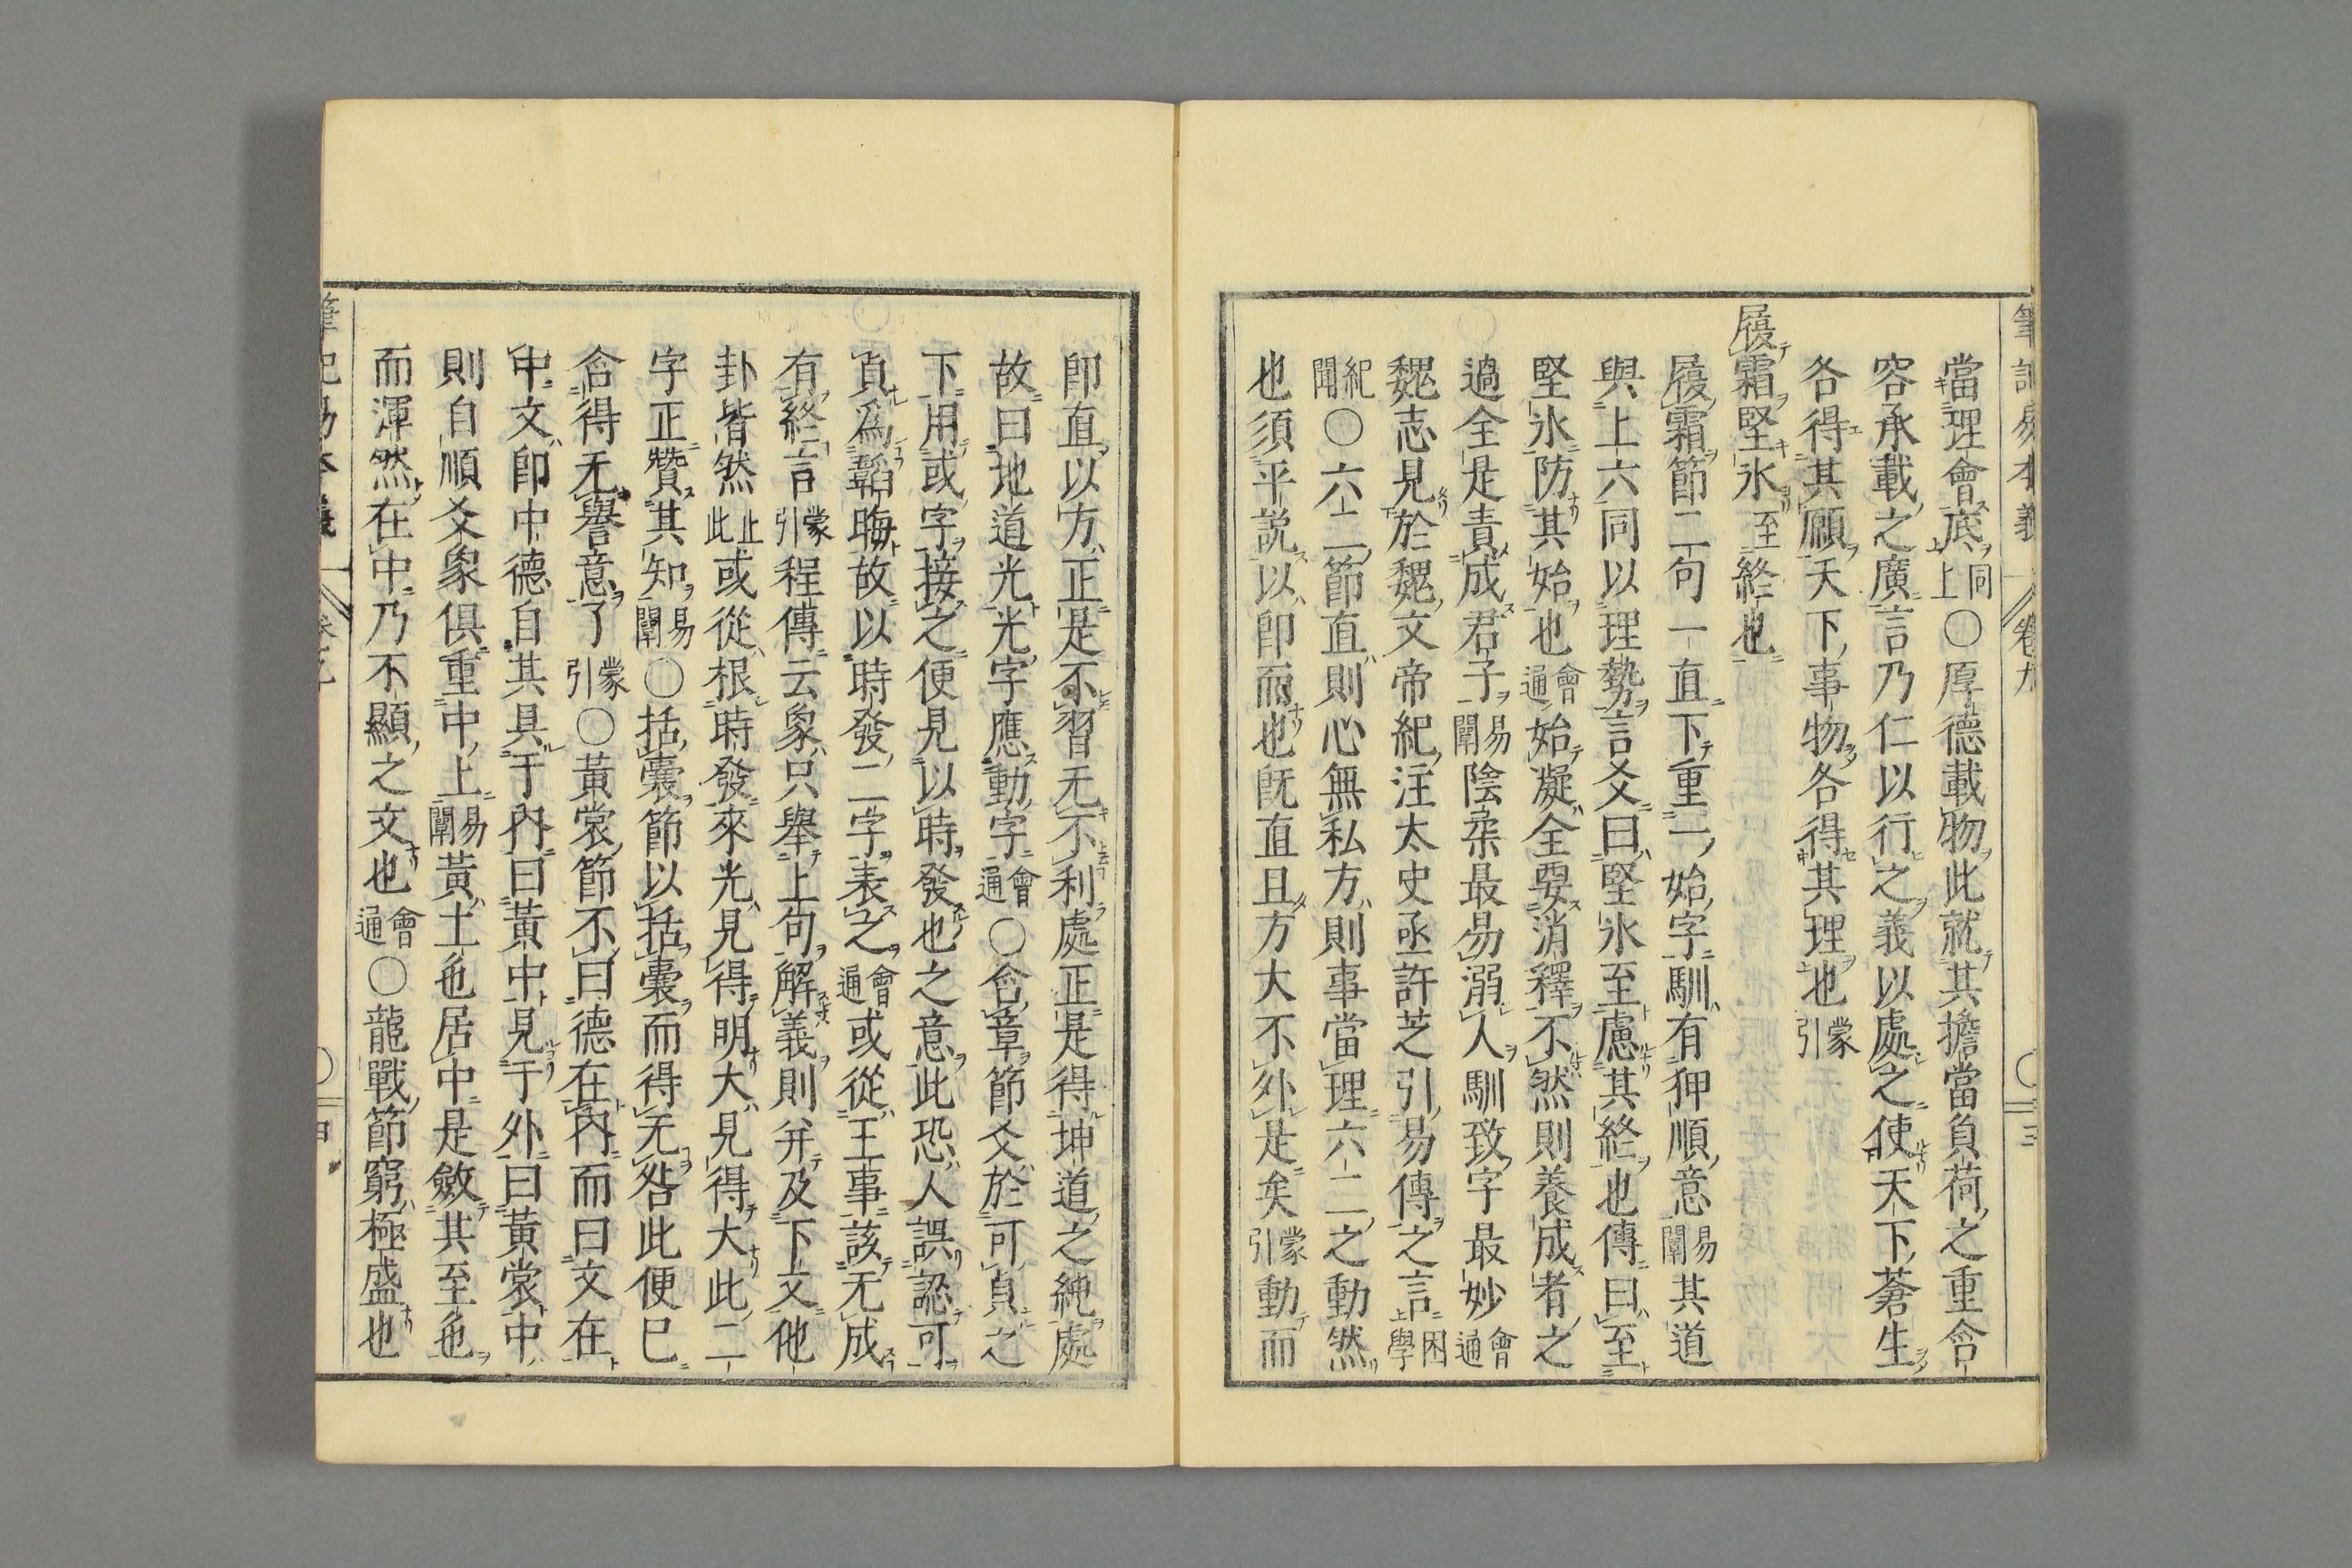 筆記易本義 卷九 〇三
當理會底同上〇厚德載物此就其擔當負荷之重含
容承載之廣言乃仁以行之義以處之使天下蒼生
各得其願天下事物各得其理也蒙引
履霜堅氷至終也
履霜節二句一直下重一始字馴有狎順意易闡其道
與上六同以理勢言爻曰堅氷至慮其終也傳曰至
堅氷防其始也會通始凝全要消釋不然則養成者之
過全是責成君子易闡陰柔最易溺人馴致字最妙會通
魏志見於魏文帝紀注太史丞許芝引易傳之言困學
紀聞〇六二節直則心無私方則事當理六二之動然
也須平説以卽而也旣直且方大不外是矣蒙引動而
卽直以方正是不習无不利處正是得坤道之純處
故曰地道光光字應動字會通〇含章節爻於可貞之
下用或字接之便見以時發也之意此恐人誤認可
貞爲韜晦故以時發二字表之會通或從王事該无成
有終言蒙引程傳云象只舉上句解義則并及下文他
卦皆然止此或從根時發來光見得明大見得大此二
字正贊其知易闡〇括囊節以括囊而得无咎此便已
含得无譽意了蒙引〇黃裳節不曰德在內而曰文在
中文卽中德自其具于內曰黃中見于外曰黃裳中
則自順爻象俱重中上易闡黃土色居中是斂其至色
而渾然在中乃不顯之文也會通〇龍戰節窮極盛也
筆記易本義